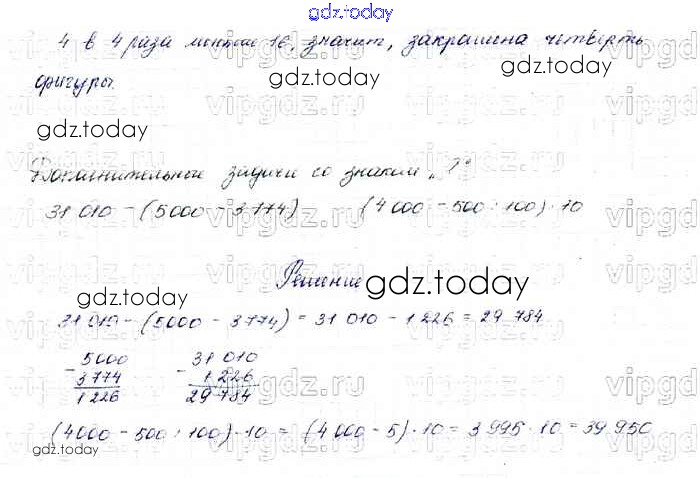 gdz.today
4 в 4 раза меньше 16, значит, закрашена четверть
фигуры.
gdz.today
gdz.today
Дополнительные задачи со знаком „?"
31 010 - (5000 - 3774) (4 000 - 500 : 100) · 10
Решение
gdz.today
gdz.today
31 010 - (5000 - 3774) = 31 010 - 1 226 = 29 784
- 5000 - 31 010
3 774 1 226
1 226 29 784
(4000 - 500 : 100) · 10 = (4 000 - 5) · 10 = 3 995 · 10 = 39 950
gdz.today